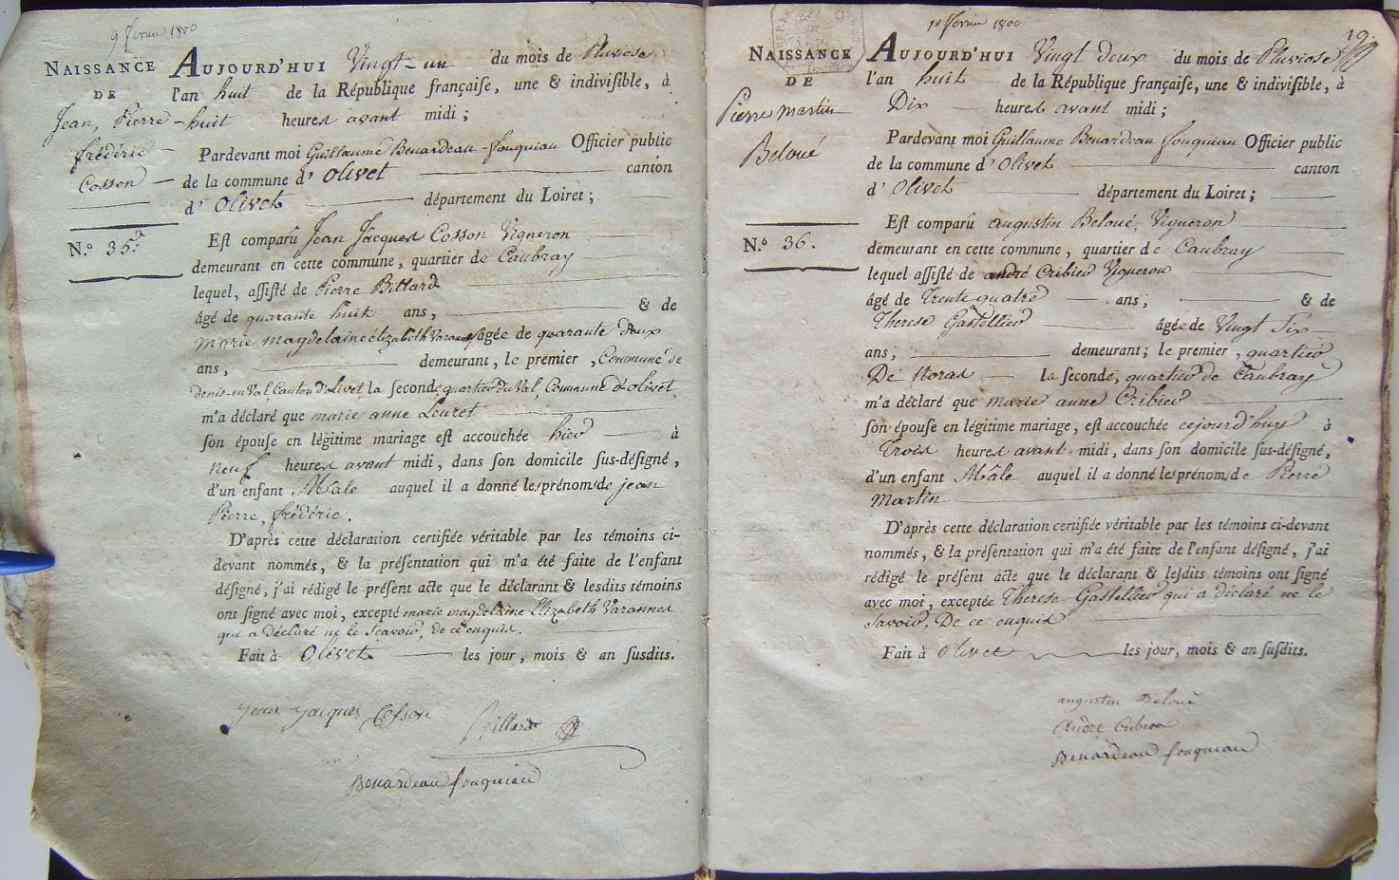 9 février 1800
NAISSANCE
DE
Jean, Pierre
frédéric
Cosson
N.° 35.
AUJOURD'HUI Vingt-un du mois de Pluviose
l'an huit de la République françaife, une & indivifible, à
huit heures avant midi ;
Pardevant moi Guillaume Benardeau-fouquiau Officier public
de la commune d' Olivet canton
d' Olivet département du Loiret ;
Eft comparû Jean Jacques Cosson Vigneron
demeurant en cette commune, quartier de Caubray
lequel, affifté de Pierre Billard
âgé de quarante huit ans, & de
marie magdelaine élizabeth Varannes âgée de quarante deux
ans, demeurant, le premier, Commune de
denis-en Val Canton d'olivet la feconde, quartier du Val, Commune d'olivet,
m'a déclaré que marie anne Louret
fon époufe en légitime mariage eft accouchée hier à
neuf heures avant midi, dans fon domicile fus-défigné,
d'un enfant Mâle auquel il a donné les prénoms de jean
Pierre, frédéric.
D'après cette déclaration certifiée véritable par les témoins ci-
devant nommés, & la préfentation qui m'a été faite de l'enfant
défigné, j'ai rédigé le préfent acte que le déclarant & lefdits témoins
ont figné avec moi, excepté marie magdelaine Elizabeth Varannes
qui a déclaré ne le Scavoir, de ce enquis.
Fait à Olivet les jour, mois & an fufdits.
Jean Jacques Cosson Billard
Benardeau fouquiau
10 février 1800
19.
NAISSANCE
DE
Pierre martin
Beloué
N.° 36.
AUJOURD'HUI Vingt deux du mois de Pluviose
l'an huit de la République françaife, une & indivifible, à
Dix heures avant midi ;
Pardevant moi Guillaume Benardeau fouquiau Officier public
de la commune d' Olivet canton
d' Olivet département du Loiret ;
Eft comparû augustin Beloué, Vigneron
demeurant en cette commune, quartier de Caubray
lequel affifté de andré Cribier Vigneron
âgé de Trente quatre ans, & de
Therese Gastellier âgée de Vingt Six
ans, demeurant ; le premier, quartier
De Noras la feconde, quartier de Caubray
m'a déclaré que marie anne Cribier
fon époufe en légitime mariage, eft accouchée cejourd'huy à
Trois heures avant midi, dans fon domicile fus-défigné,
d'un enfant Mâle auquel il a donné les prénoms de Pierre
Martin
D'après cette déclaration certifiée véritable par les témoins ci-devant
nommés, & la préfentation qui m'a été faite de l'enfant défigné, j'ai
rédigé le préfent acte que le déclarant & lefdits témoins ont figné
avec moi, exceptée Therese Gastellier qui a déclaré ne le
Savoir, De ce enquis
Fait à Olivet les jour, mois & an fufdits.
augustin Beloué
andré Cribier
Benardeau fouquiau